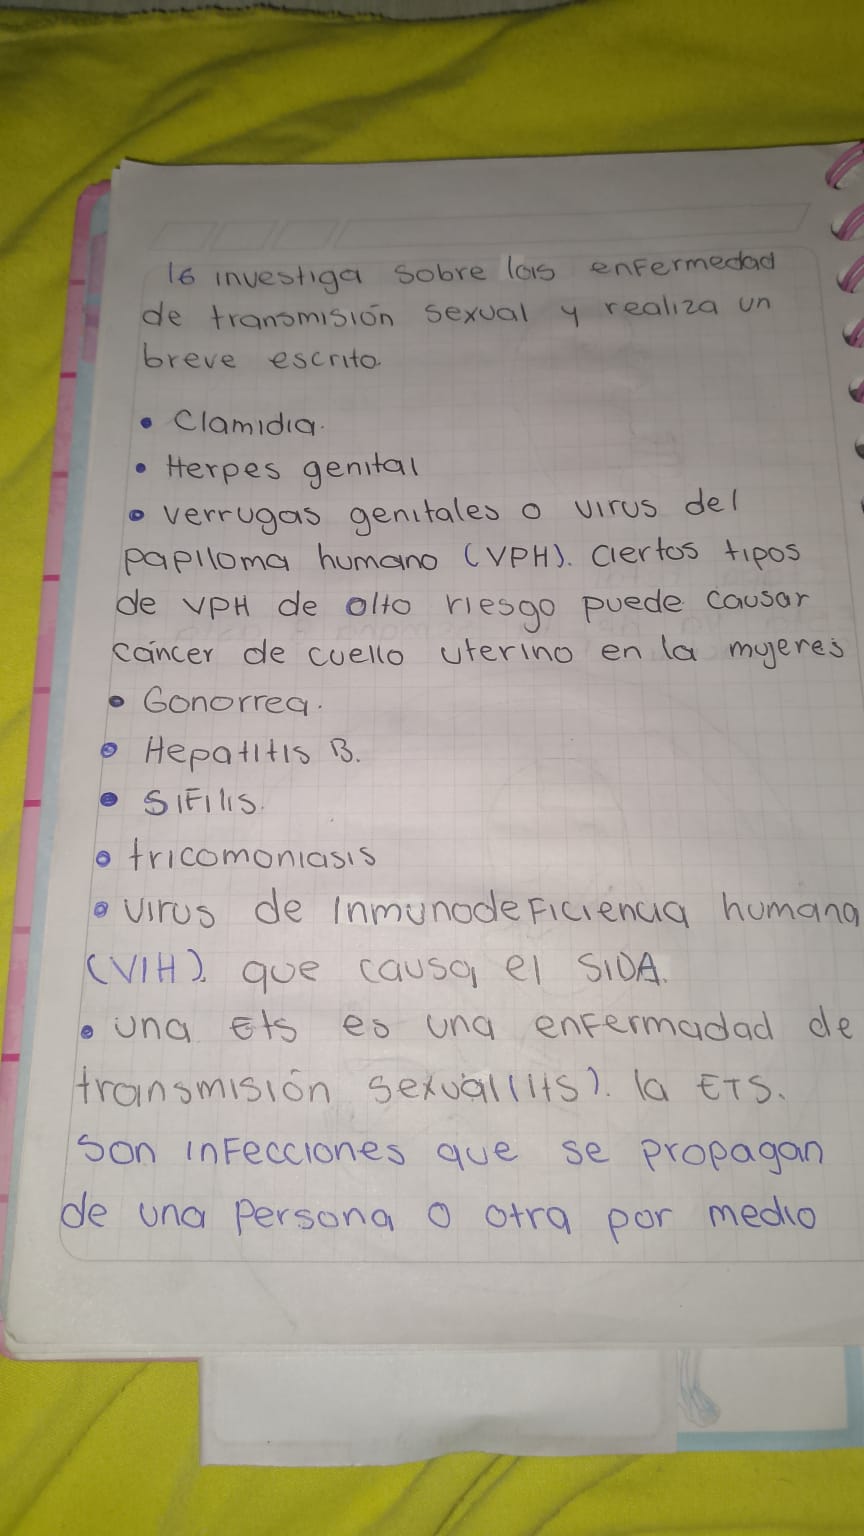 16 investiga sobre las enfermedad
de transmisión sexual y realiza un
breve escrito.
• Clamidia.
• Herpes genital
• verrugas genitales o virus del
papiloma humano (VPH). ciertos tipos
de VPH de alto riesgo puede causar
cáncer de cuello uterino en la mujeres
• Gonorrea.
• Hepatitis B.
• SIFIlis.
• tricomoniasis
• virus de inmunodeficiencia humana
(VIH). que causa el SIDA.
• una Ets es una enfermadad de
transmisión sexual (its). la ETS.
son infecciones que se propagan
de una persona o otra por medio